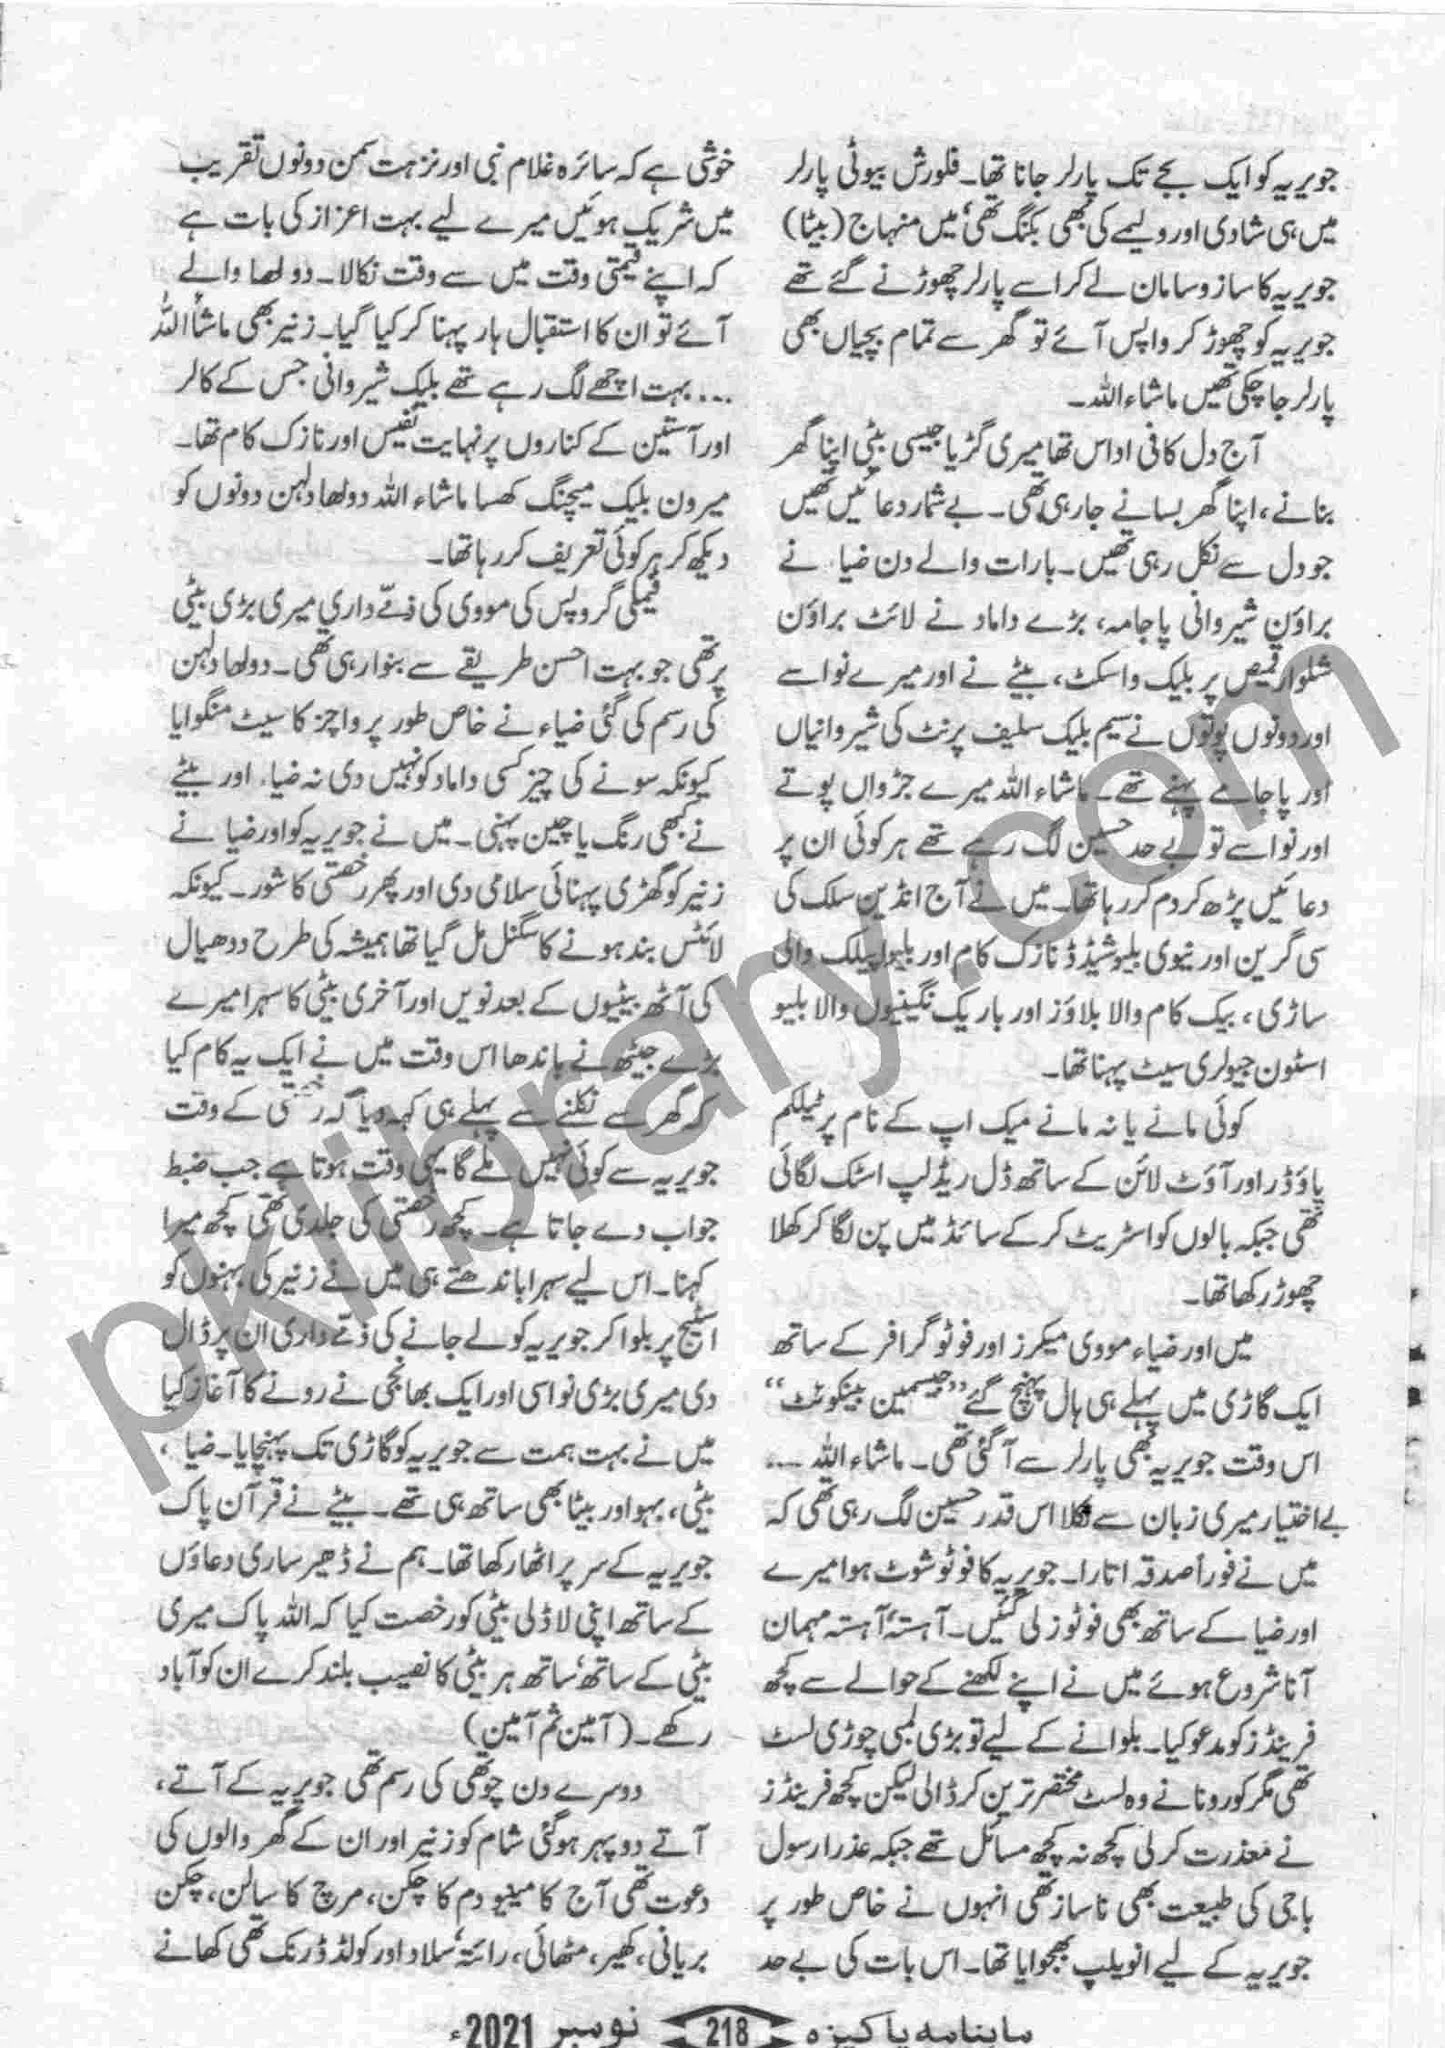 جویریہ کو ایک بجے تک پارلر جانا تھا۔ فلورش بیوٹی پارلر
میں ہی شادی اور ولیمے کی بھی بکنگ تھی، میں منہاج (بیٹا)
جویریہ کا ساز و سامان لے کر اسے پارلر چھوڑنے گئے تھے
جویریہ کو چھوڑ کر واپس آئے تو گھر سے تمام بچیاں بھی
پارلر جا چکی تھیں ماشاء اللہ۔
آج دل کافی اداس تھا میری گڑیا جیسی بیٹی اپنا گھر
بنانے، اپنا گھر بسانے جا رہی تھی۔ بے شمار دعائیں تھیں
جو دل سے نکل رہی تھیں۔ بارات والے دن ضیاء نے
براؤن شیروانی پاجامہ، بڑے داماد نے لائٹ براؤن
شلوار قمیص پر بلیک واسکٹ، بیٹے نے اور میرے نواسے
اور دونوں پوتوں نے سیم بلیک سلیف پرنٹ کی شیروانیاں
اور پاجامے پہنے تھے۔ ماشاء اللہ میرے جڑواں پوتے
اور نواسے تو بے حد حسین لگ رہے تھے ہر کوئی ان پر
دعائیں پڑھ کر دم کر رہا تھا۔ میں نے آج انڈین سلک کی
سی گرین اور نیوی بلیو شیڈڈ نازک کام اور بلیو پلک والی
ساڑی، بیک کام والا بلاؤز اور باریک نگینیوں والا بلیو
اسٹون جیولری سیٹ پہنا تھا۔
کوئی مانے یا نہ مانے میک اپ کے نام پر ٹیلکم
پاؤڈر اور آؤٹ لائن کے ساتھ ڈل ریڈ لپ اسٹک لگائی
تھی جبکہ بالوں کو اسٹریٹ کر کے سائڈ میں پن لگا کر کھلا
چھوڑ رکھا تھا۔
میں اور ضیاء مووی میکرز اور فوٹو گرافر کے ساتھ
ایک گاڑی میں پہلے ہی ہال پہنچ گئے ”جیسمین بینکوئٹ“
اس وقت جویریہ بھی پارلر سے آ گئی تھی۔ ماشاء اللہ ....
بے اختیار میری زبان سے نکلا اس قدر حسین لگ رہی تھی کہ
میں نے فوراً صدقہ اتارا۔ جویریہ کا فوٹو شوٹ ہوا میرے
اور ضیا کے ساتھ بھی فوٹوز لی گئیں۔ آہستہ آہستہ مہمان
آنا شروع ہوئے میں نے اپنے لکھنے کے حوالے سے کچھ
فرینڈز کو مدعو کیا۔ بلوانے کے لیے تو بڑی لمبی چوڑی لسٹ
تھی مگر کورونا نے وہ لسٹ مختصر ترین کر ڈالی لیکن کچھ فرینڈز
نے معذرت کر لی کچھ نہ کچھ مسائل تھے جبکہ عذرا رسول
باجی کی طبیعت بھی ناساز تھی انہوں نے خاص طور پر
جویریہ کے لیے انویلپ بھجوایا تھا۔ اس بات کی بے حد
خوشی ہے کہ سائرہ غلام نبی اور نزہت سمن دونوں تقریب
میں شریک ہوئیں میرے لیے بہت اعزاز کی بات ہے
کہ اپنے قیمتی وقت میں سے وقت نکالا۔ دولھا والے
آئے تو ان کا استقبال ہار پہنا کر کیا گیا۔ زنیر بھی ماشاء اللہ
... بہت اچھے لگ رہے تھے بلیک شیروانی جس کے کالر
اور آستین کے کناروں پر نہایت نفیس اور نازک کام تھا۔
میرون بلیک میچنگ کھسا ماشاء اللہ دولھا دلہن دونوں کو
دیکھ کر ہر کوئی تعریف کر رہا تھا۔
فیملی گروپس کی مووی کی ذمّے داری میری بڑی بیٹی
پر تھی جو بہت احسن طریقے سے بنوا رہی تھی۔ دولھا دلہن
کی رسم کی گئی ضیاء نے خاص طور پر واچز کا سیٹ منگوایا
کیونکہ سونے کی چیز کسی داماد کو نہیں دی نہ ضیاء اور بیٹے
نے کبھی رنگ یا چین پہنی۔ میں نے جویریہ کو اور ضیا نے
زنیر کو گھڑی پہنائی سلامی دی اور پھر رخصتی کا شور۔ کیونکہ
لائٹس بند ہونے کا سگنل مل گیا تھا ہمیشہ کی طرح ددھیال
کی آٹھ بیٹیوں کے بعد نویں اور آخری بیٹی کا سہرا میرے
بڑے جیٹھ نے باندھا اس وقت میں نے ایک یہ کام کیا
کہ گھر سے نکلنے سے پہلے ہی کہہ دیا کہ رخصتی کے وقت
جویریہ سے کوئی نہیں ملے گا یہی وقت ہوتا ہے جب ضبط
جواب دے جاتا ہے۔ کچھ رخصتی کی جلدی تھی کچھ میرا
کہنا۔ اس لیے سہرا باندھتے ہی میں نے زنیر کی بہنوں کو
اسٹیج پر بلوا کر جویریہ کو لے جانے کی ذمّے داری ان پر ڈال
دی میری بڑی نواسی اور ایک بھانجی نے رونے کا آغاز کیا
میں نے بہت ہمت سے جویریہ کو گاڑی تک پہنچایا۔ ضیا،
بیٹی، بہو اور بیٹا بھی ساتھ ہی تھے۔ بیٹے نے قرآن پاک
جویریہ کے سر پر اٹھا رکھا تھا۔ ہم نے ڈھیر ساری دعاؤں
کے ساتھ اپنی لاڈلی بیٹی کو رخصت کیا کہ اللہ پاک میری
بیٹی کے ساتھ، ساتھ ہر بیٹی کا نصیب بلند کرے ان کو آباد
رکھے۔ (آمین ثم آمین)
دوسرے دن چوتھی کی رسم تھی جویریہ کے آتے،
آتے دوپہر ہو گئی شام کو زنیر اور ان کے گھر والوں کی
دعوت تھی آج کا مینیو دم کا چکن، مرچ کا سالن، چکن
بریانی، کھیر، مٹھائی، رائتہ، سلاد اور کولڈ ڈرنک تھی کھانے
ماہنامہ پاکیزہ 218 نومبر 2021ء
pklibrary.com